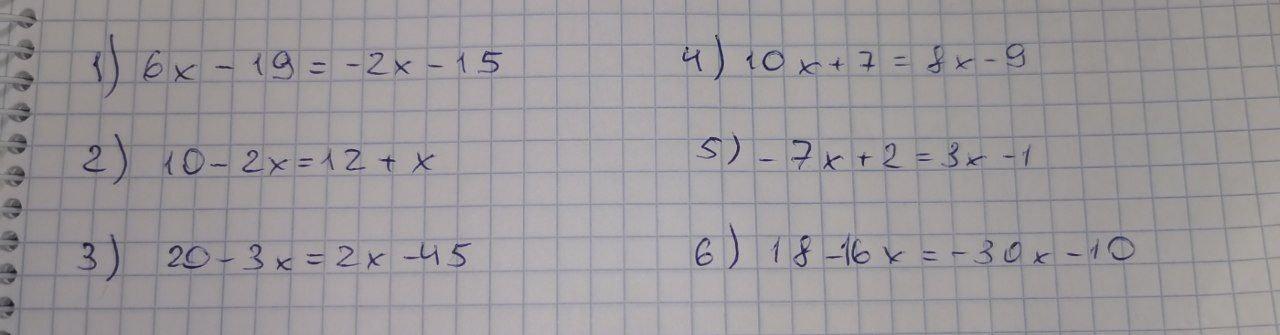 1) 6x - 19 = -2x - 15
4) 10x + 7 = 8x - 9
2) 10 - 2x = 12 + x
5) - 7x + 2 = 3x - 1
3) 20 - 3x = 2x - 45
6) 18 - 16x = -30x - 10